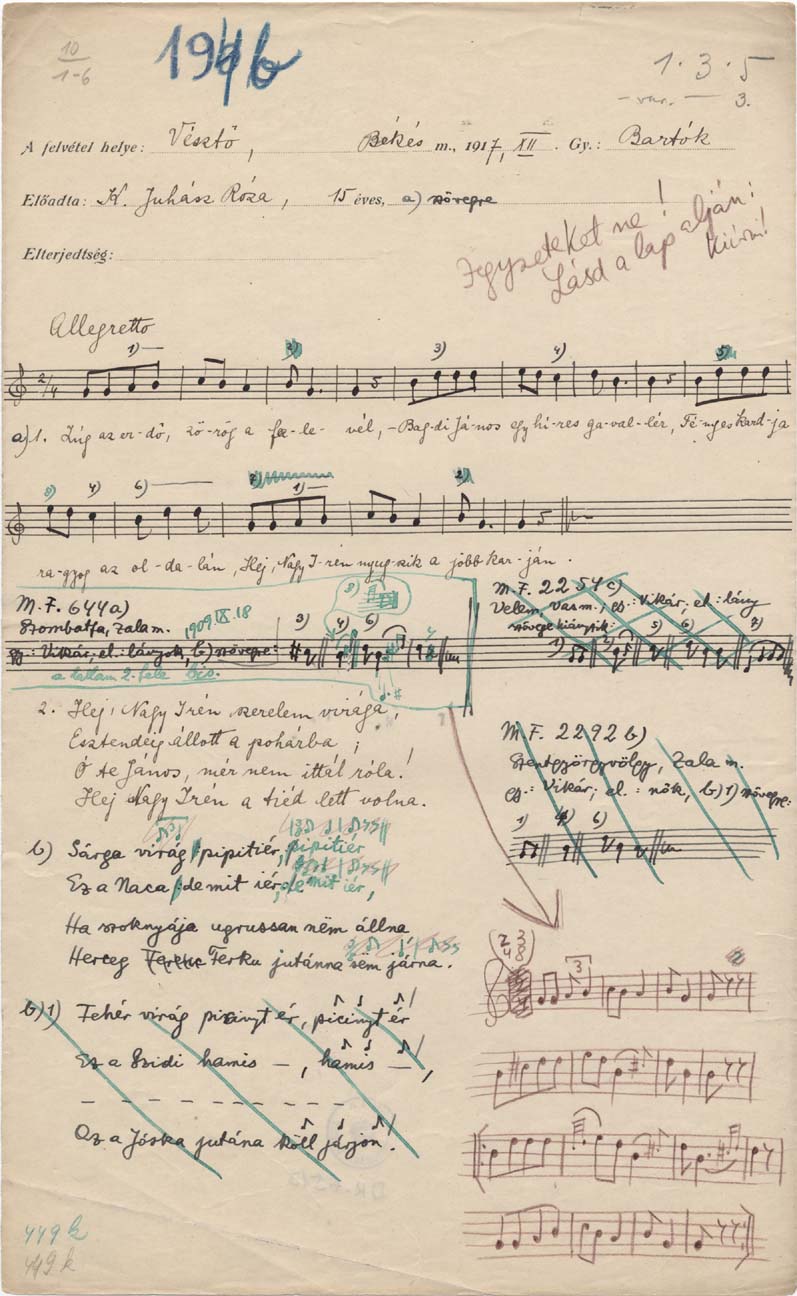 10
1-6
1946
1 · 3 · 5
— var. — 3.
A felvétel helye: Vésztő, Békés m., 1917, XII. Gy.: Bartók
Előadta: K. Juhász Róza, 15 éves, a) szövegre
Jegyzeteket ne!
Lásd a lap alján!
Kiírni!
Elterjedtség:
Allegretto
1) 2) 3) 4) 5)
2/4
a) 1. Zúg az er-dő, zö-rög a fa-le-vél, -Bag-di Já-nos egy hí-res ga-val-lér, Fé-nyes kard-ja
3) 4) 6) 7) 1) 2)
ra-gyog az ol-da-lán, Hej, Nagy I-rén nyug-szik a jobb kar-ján.
M.F. 644a)
Szombatfa, Zala m. 1909.IX.18
gy.: Vikár; el.: lányok, b) szövegre:
3) 4) 6) 8)
a dallam 2. fele
M.F. 2254c)
Velem, Vas m.; gy.: Vikár; el.: lány
szövege hiányzik:
1) 5) 6) 7)
2. Hej, Nagy Irén szerelem virága,
Esztendeig állott a pohárba;
Ó te János, mér nem ittál róla!
Hej Nagy Irén a tiéd lett volna.
M.F. 2292b)
Szentgyörgyvölgy, Zala m.
gy.: Vikár; el.: nők, b) 1) szövegre:
1) 4) 6)
b) Sárga virág pipitiér, pipitiér
Ez a Naca de mit iér, de mit iér,
Ha szoknyája ugrussan nëm állna
Herceg Ferku jutánna sëm járna.
2/4 3/8
3
2
b) 1) Fehér virág piciny't ér, piciny't ér
Ez a Szidi hamis —, hamis —,
— — — — — — — —
Az a Jóska jutána köll járjon!
449k
449k